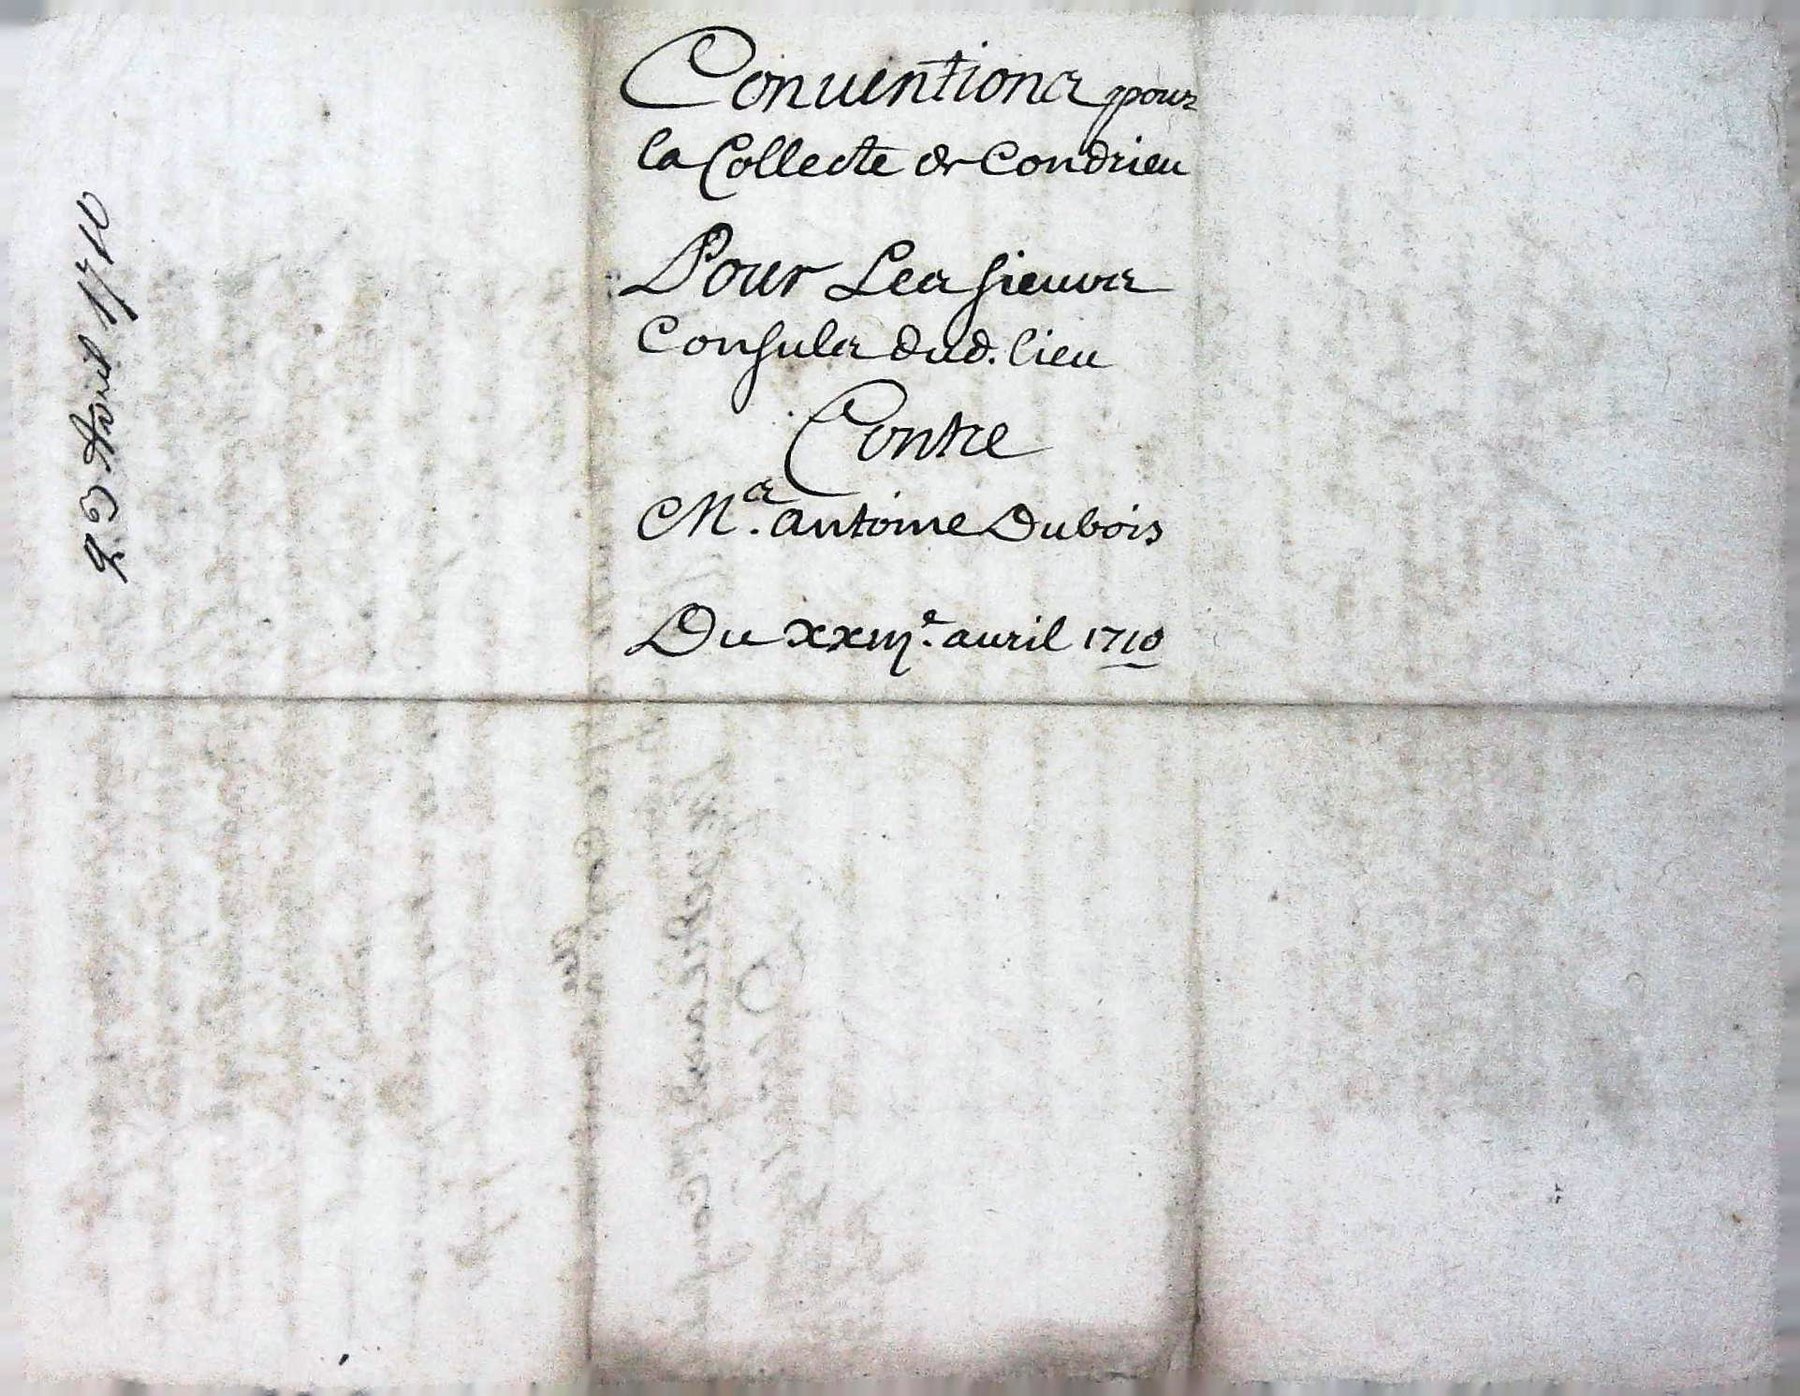 Conuentions pour
la Collecte de Condrieu
Pour Les sieurs
Consuls dud. lieu
Contre
Me. antoine Dubois
Du xxiije. auril 1710
23 Avril 1710